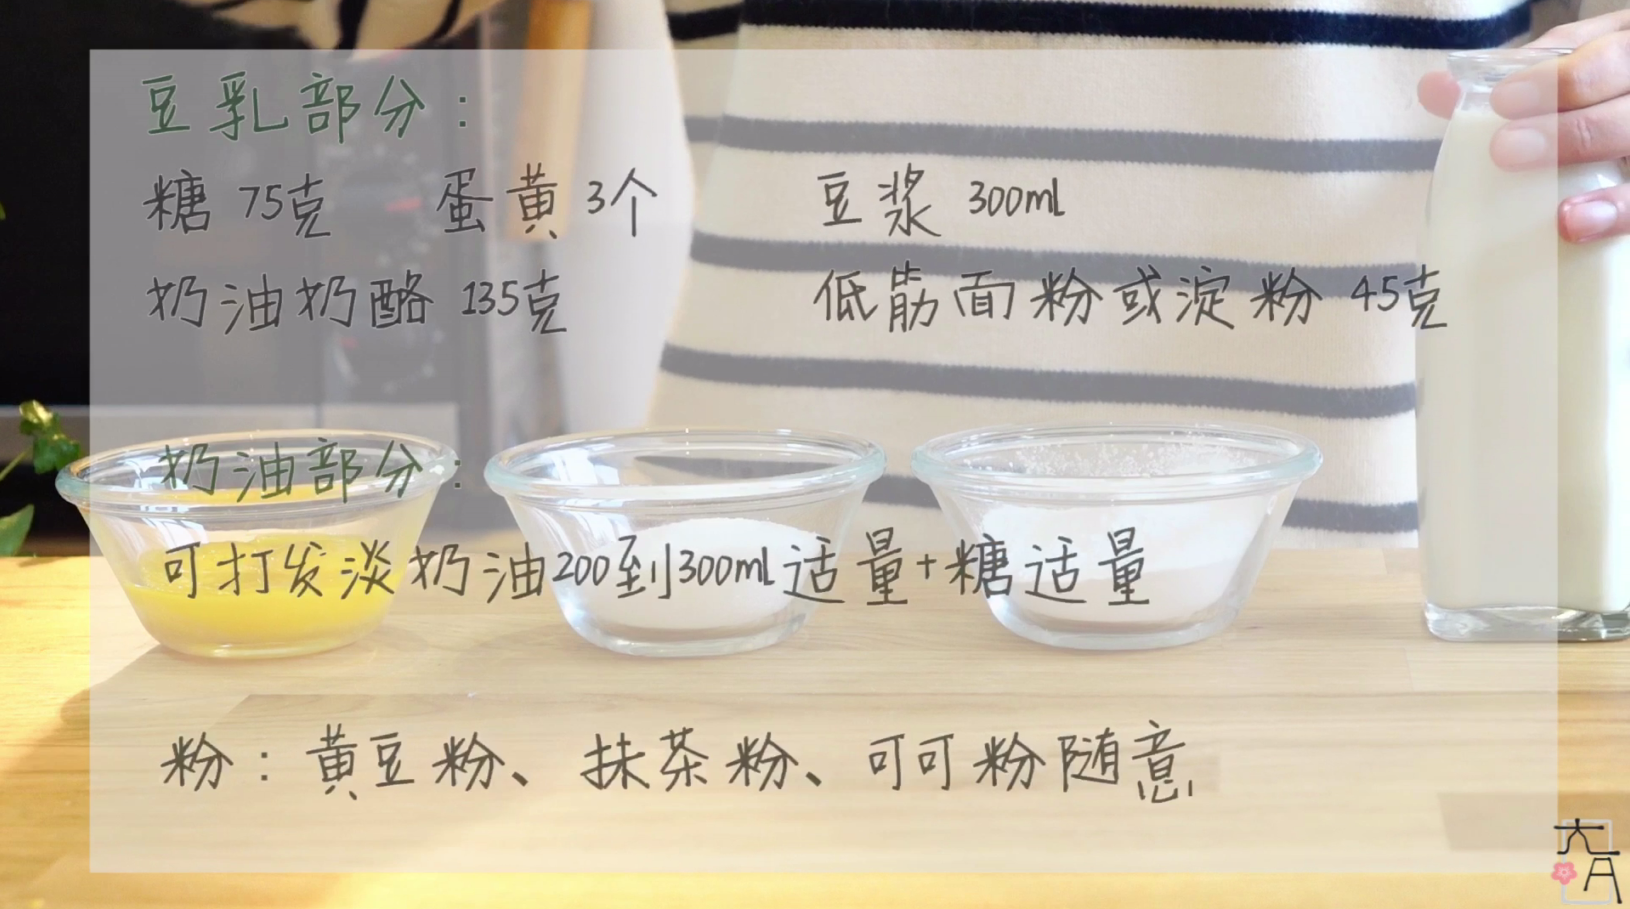 豆乳部分：
糖 75克 蛋黄 3个 豆浆 300ml
奶油奶酪 135克 低筋面粉或淀粉 45克
奶油部分：
可打发淡奶油200到300ml适量+糖适量
粉：黄豆粉、抹茶粉、可可粉随意